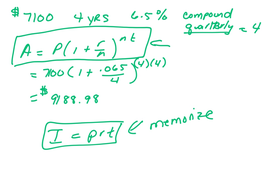 $7100 4 yrs 6.5% compound quarterly = 4
A = P(1 + r/n)^nt
= 7100(1 + .065/4)^(4)(4)
= $9188.98
I = prt memorize